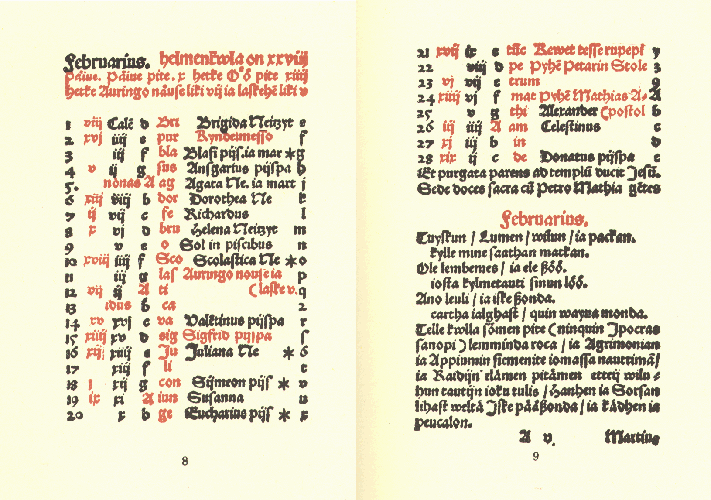 Februarius. helmenkwla on xxviij
päiue. Päiue pite. x hetke Öö pite xiiij
hetke Auringo nause liki vij ia laskehe liki v
1 viij Cale d Bri Brigida Neitzyt e
2 xvj iiij e pur Kyndelmesso f
3 iij f bla Blasi pijs. ia mar * g
4 v ij g sus Ansgartus pijspa h
5. nonas A ag Agata Ne. ia mart i
6 xiij viij b dor Dorothea Ne k
7 ij vij c fe Richardus l
8 x vj d bru Helena Neitzye m
9 v e o Sol in piscibus n
10 xviij iiij f Sco Scolastica Ne * o
11 iij g las Auringo nouse ia p
12 vij ij A ti (laske v. q
13 idus b ca 2
14 xv xvj c va Valetinus pijspa r
15 xiiij xv d sig Sigfrid pijspa s
16 xij xiiij e Ju Juliana Ne * 6
17 xiij f li t
18 i xij g con Sijmeon pijs * v
19 ix xi A iun Susanna u
20 x b ge Eucharius pijs * x
8
21 xvij ix c tue Rewet tesse rupepi y
22 viij d pe Pyhe Petarin Stole z
23 vj vij e trum 9
24 xiiij vj f mae Pyhe Mathias A- A
25 v g thi Alexander (postol b
26 iij iiij A am Celestinus c
27 xj iij b in d
28 xix ij c de Donatus pijspa e
Et purgata parens ad templu ducit Jesu.
Sede doces sacra cu Petro Mathia getes
Februarius.
Tuyskun / Lumen / wilun / ia packan.
kylle mine saathan matkan.
Ole lembemes / ia ele söö.
iosta kylmetauti sinun löö.
Ano leuli / ia iske ßonda.
cartha ialghast / quin wayua monda.
Telle kwlla sömen pite (ninquin Ipocras
sanopi) lemminda roca / ia Agrimonian
ia Appiumin siemenite iomassa nauttima /
ia Raidijn elämen pitämen etteij wilu =
hun tautijn ioku tulis / Hanhen ia Sorsan
lihast weltä Iske pääßonda / ia kädhen ia
peucalon.
A v. Martius
9